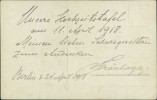 Unsere Hochzeitstafel
am 11. April 1918.
Meinen lieben Schwiegereltern
zum Andenken
Berlin
1918